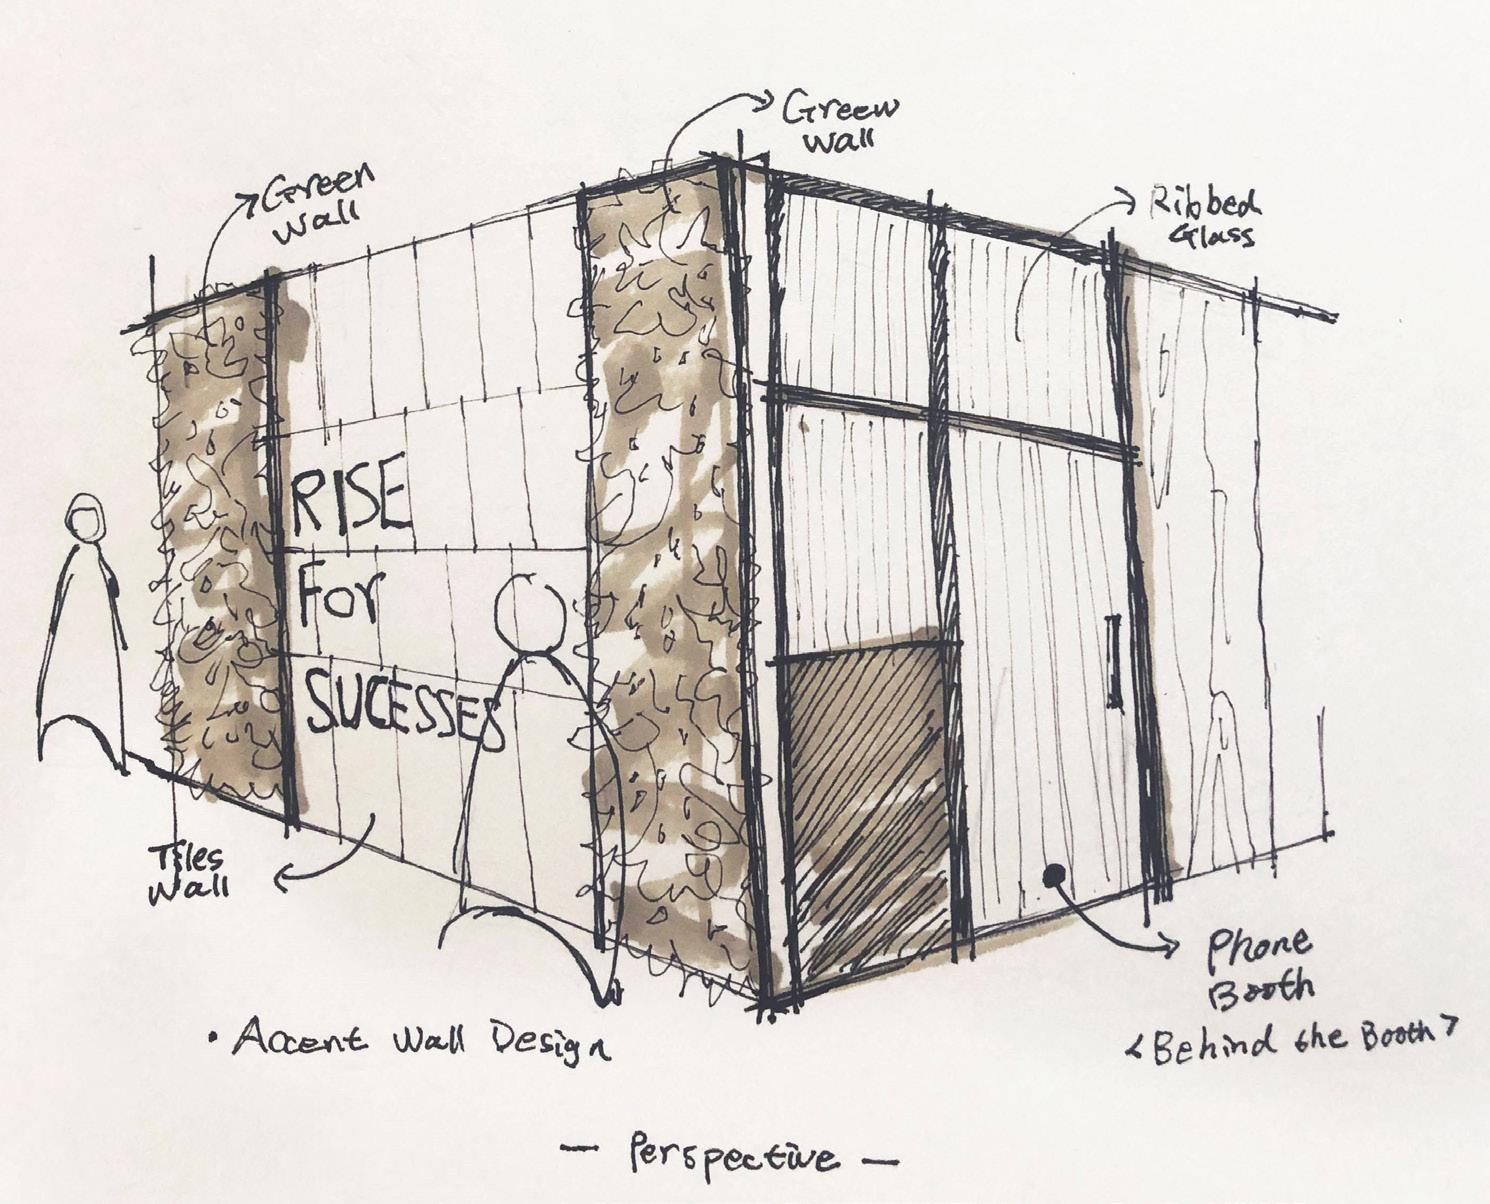 Green
wall
Green
wall
Ribbed
Glass
RISE
For
SUCESSES
Tiles
Wall
Phone
Booth
<Behind the Booth>
• Accent Wall Design
— Perspective —